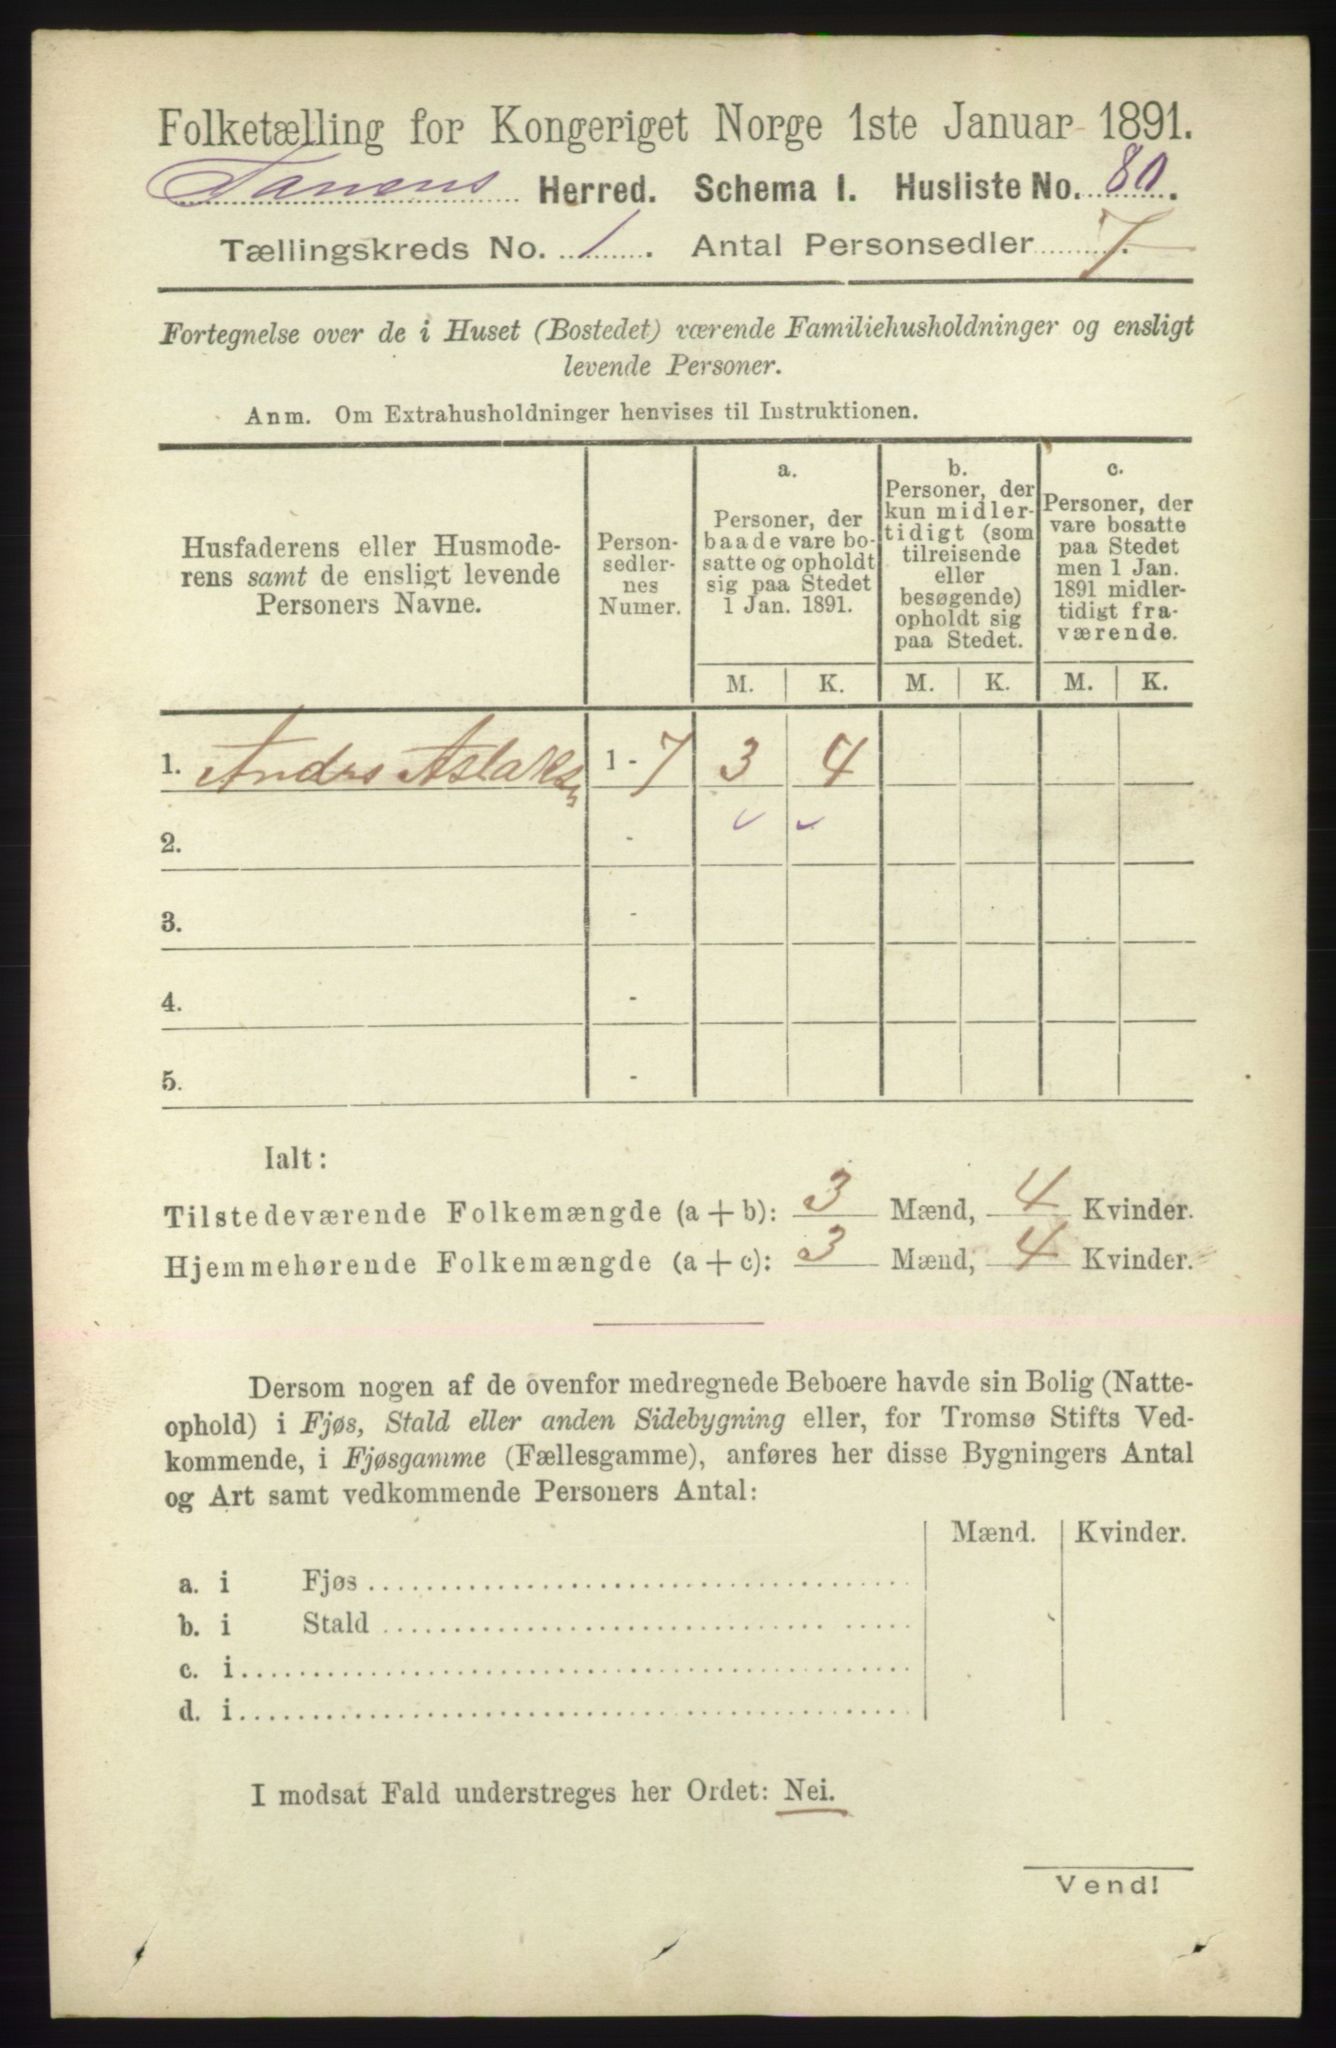 Folketælling for Kongeriget Norge 1ste Januar 1891.
Tanens Herred. Schema I. Husliste No. 80.
Tællingskreds No. 1. Antal Personsedler 7.
Fortegnelse over de i Huset (Bostedet) værende Familiehusholdninger og ensligt
levende Personer.
Anm. Om Extrahusholdninger henvises til Instruktionen.
Husfaderens eller Husmode-
rens samt de ensligt levende
Personers Navne.
Person-
sedler-
nes
Numer.
a.
Personer, der
baade vare bo-
satte og opholdt
sig paa Stedet
1 Jan. 1891.
b.
Personer, der
kun midler-
tidigt (som
tilreisende
eller
besøgende)
opholdt sig
paa Stedet.
c.
Personer, der
vare bosatte
paa Stedet
men 1 Jan.
1891 midler-
tidigt fra-
værende.
M. K. M. K. M. K.
1. Andrs Aslaksn 1 - 7 3 4
2. -
3. -
4. -
5. -
Ialt:
Tilstedeværende Folkemængde (a + b): 3 Mænd, 4 Kvinder.
Hjemmehørende Folkemængde (a + c): 3 Mænd, 4 Kvinder.
Dersom nogen af de ovenfor medregnede Beboere havde sin Bolig (Natte-
ophold) i Fjøs, Stald eller anden Sidebygning eller, for Tromsø Stifts Ved-
kommende, i Fjøsgamme (Fællesgamme), anføres her disse Bygningers Antal
og Art samt vedkommende Personers Antal:
Mænd. Kvinder.
a. i Fjøs
b. i Stald
c. i
d. i
I modsat Fald understreges her Ordet: Nei.
Vend!